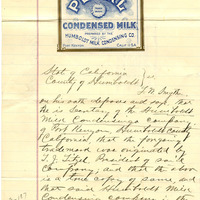 CONDENSED MILK
PREPARED BY THE
HUMBOLDT MILK CONDENSING CO.
PORT KENYON CALA. U.S.A.
State of California
County of Humboldt } ss
on his oath deposes and says that
he is Secretary of the Humboldt
Milk Condensing Company
of Port Kenyon Humboldt County
California, that the foregoing
trademark was originated by
President of said
Company, and that the above
is a true copy of same, and
that said Humboldt Milk
Condensing Company is the